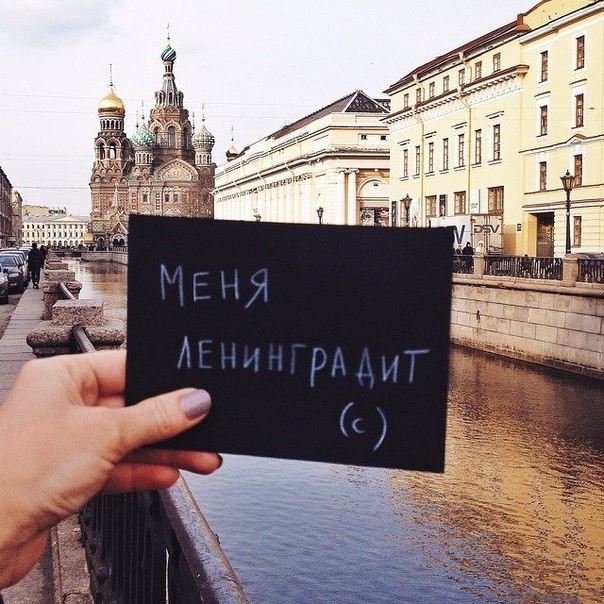 МЕНЯ
ЛЕНИНГРАДИТ
(с)
DSV